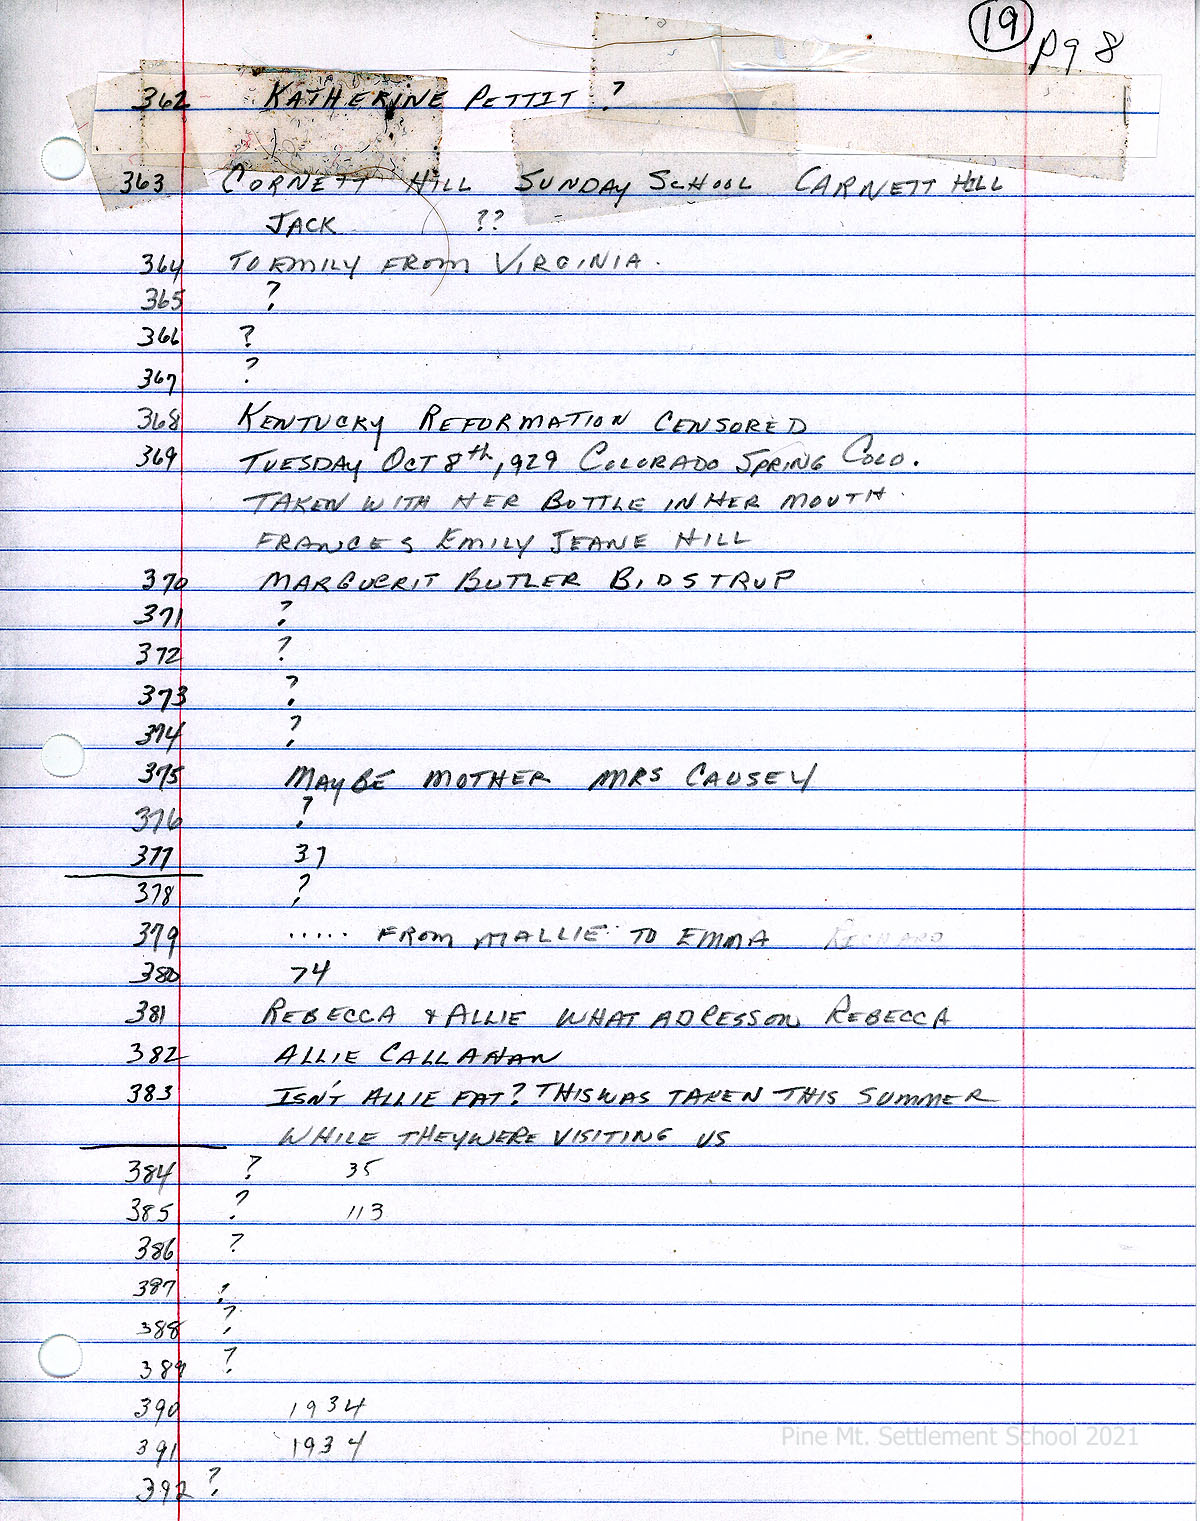 19 pg 8
362 KATHERINE PETTIT ?
363 CORNETT HILL SUNDAY SCHOOL CARNETT HILL
JACK ??
364 TO EMILY FROM VIRGINIA.
365 ?
366 ?
367 ?
368 KENTUCKY REFORMATION CENSORED
369 TUESDAY OCT 8th, 929 COLORADO SPRING COLO.
TAKEN WITH HER BOTTLE IN HER MOUTH.
FRANCES EMILY JEANE HILL
370 MARGUERIT BUTLER BIDSTRUP
371 ?
372 ?
373 ?
374 ?
375 MAYBE MOTHER MRS CAUSEY
376 ?
377 37
378 ?
379 ..... FROM MALLIE TO EMMA RICHARD
380 74
381 REBECCA & ALLIE WHAT ADRESSON REBECCA
382 ALLIE CALLAHAN
383 ISN'T ALLIE FAT? THIS WAS TAKEN THIS SUMMER
WHILE THEY WERE VISITING US
384 ? 35
385 ? 113
386 ?
387 ?
388 ?
389 ?
390 1934
391 1934
392 ?
Pine Mt. Settlement School 2021